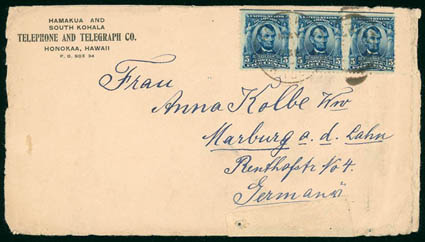 HAMAKUA AND
SOUTH KOHALA
TELEPHONE AND TELEGRAPH CO.
HONOKAA, HAWAII
P. O. BOX 34
Frau
Anna Kolbe Ww
Marburg a. d. Lahn
Renthofstr No 4.
Germania